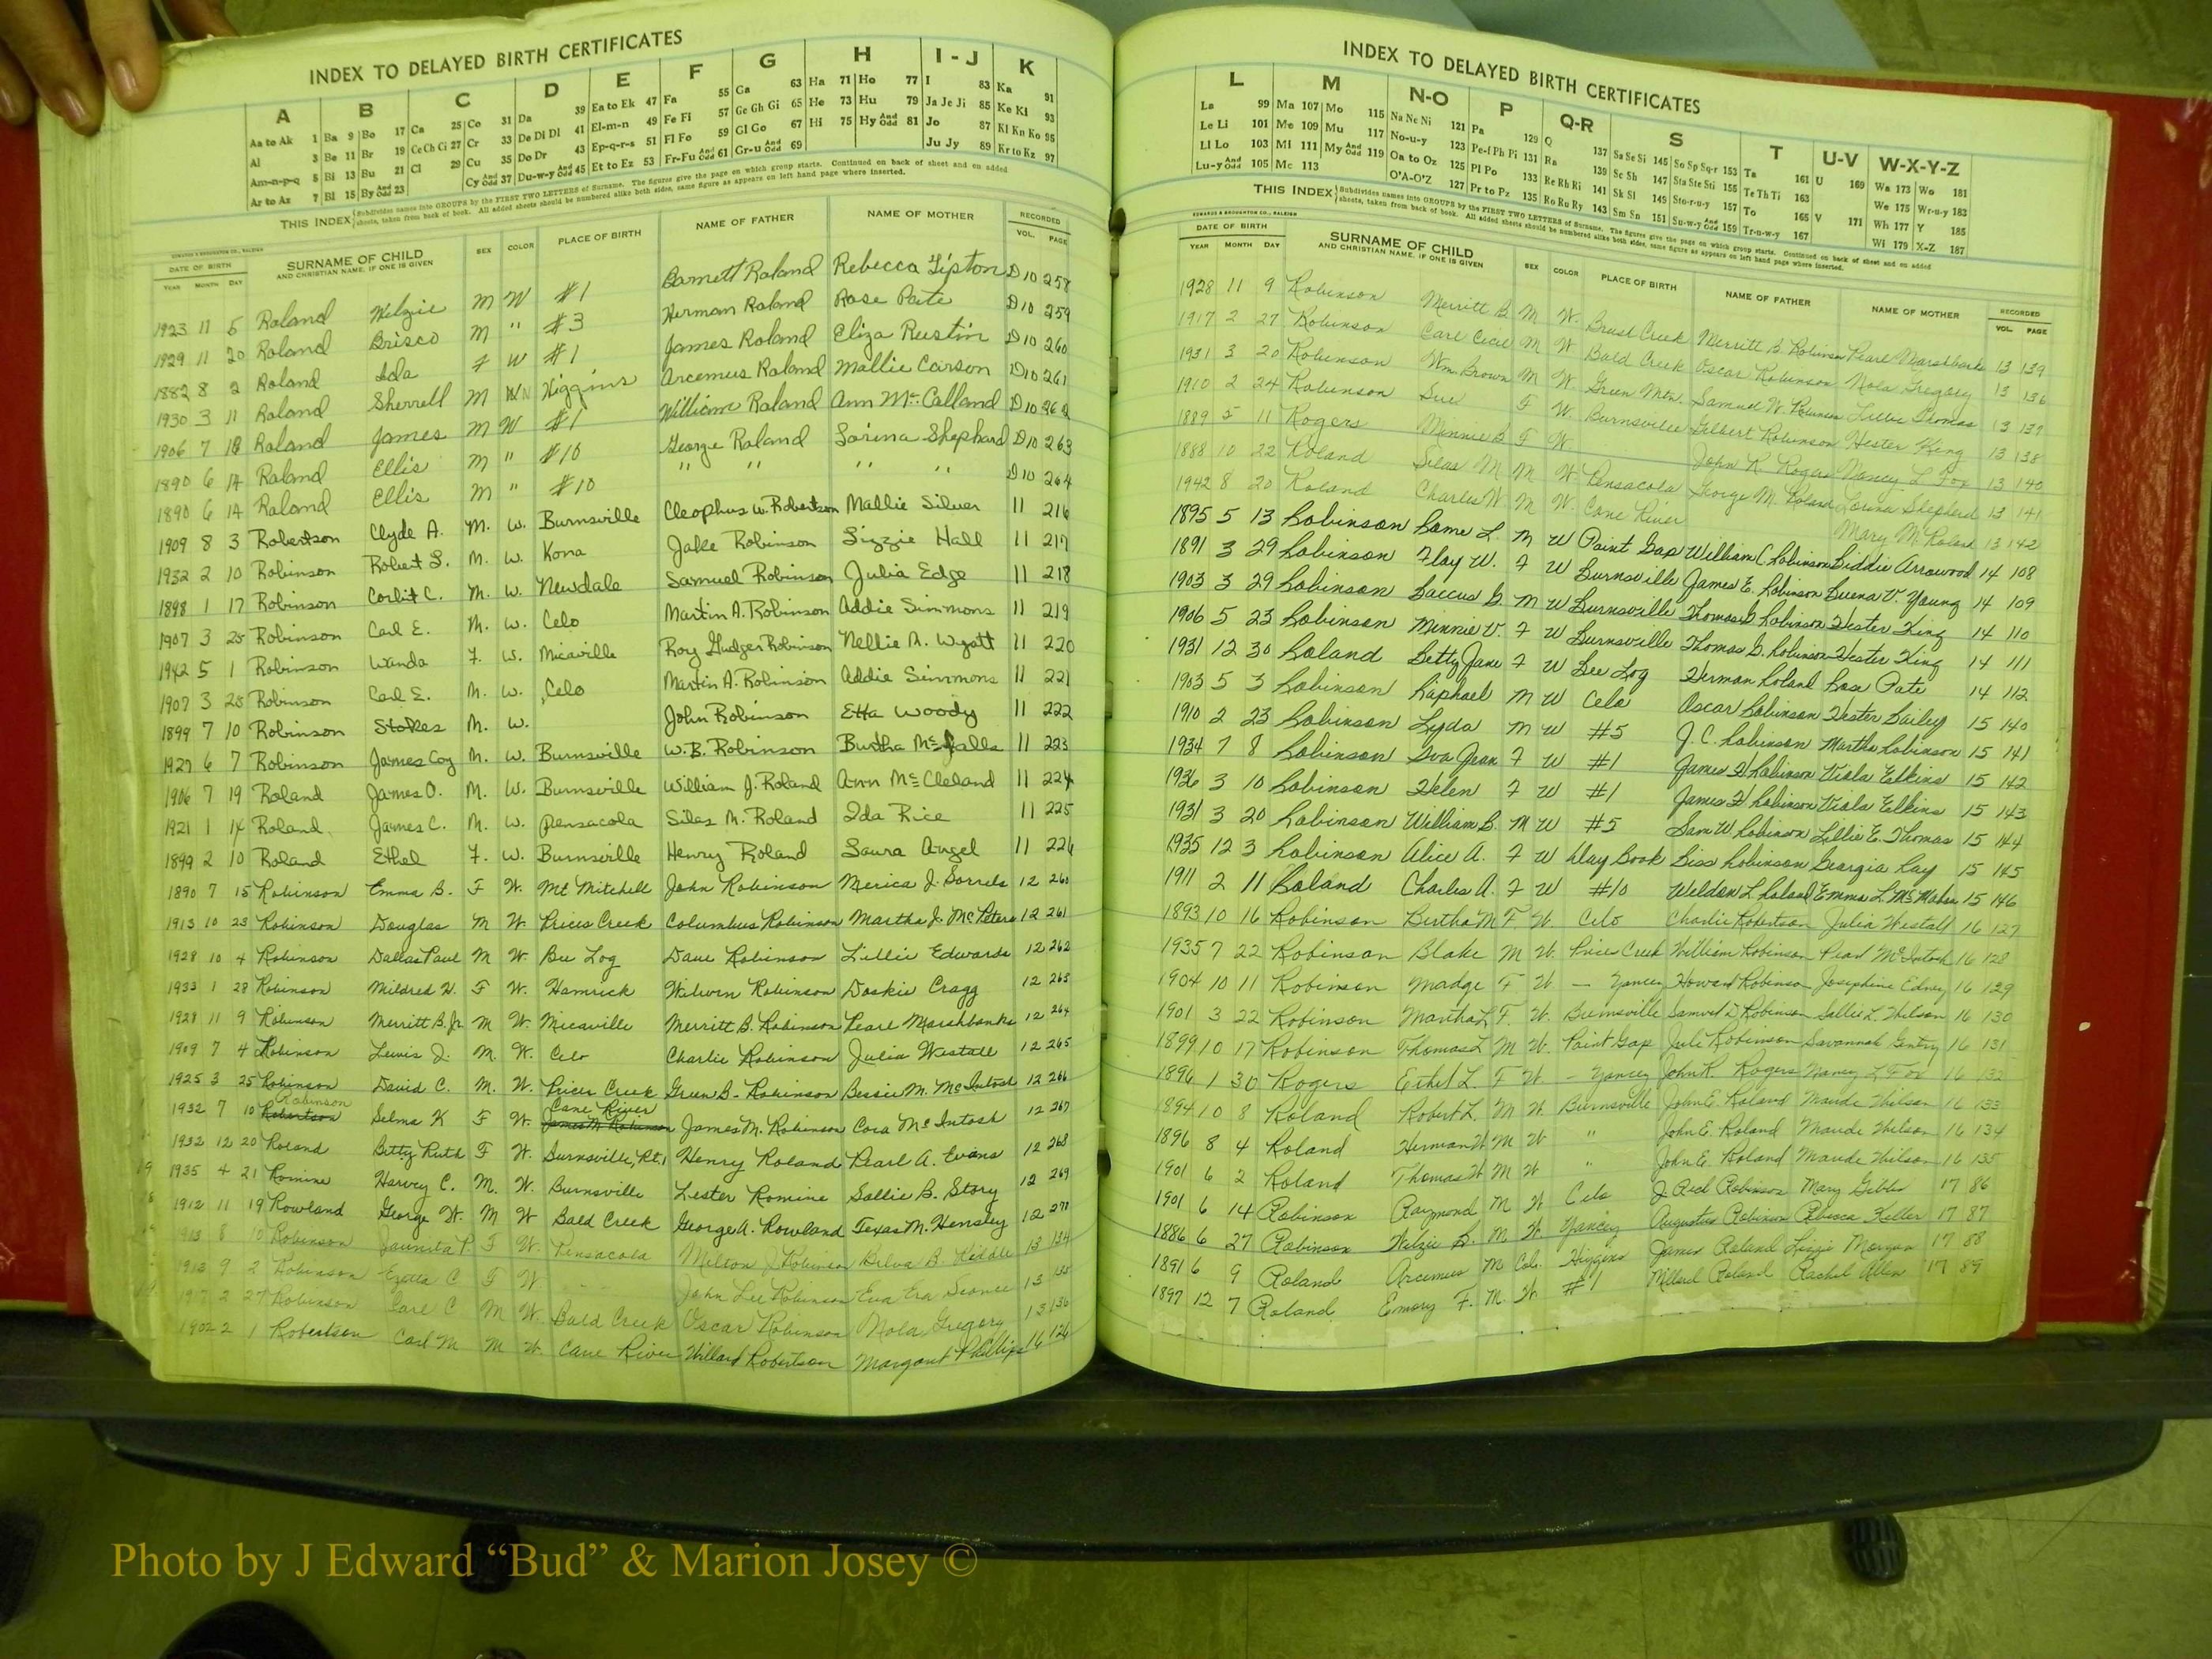 INDEX TO DELAYED BIRTH CERTIFICATES
A B C D E F G H I-J K
Aa to Ak 1 Ba 9 Bo 17 Ca 25 Co 31 Da 39 Ea to Ek 47 Fa 55 Ga 63 Ha 71 Ho 77 I 83 Ka 91
Al 3 Be 11 Br 19 Ce Ch Ci 27 Cr 33 De Di Dl 41 El-m-n 49 Fe Fi 57 Ge Gh Gi 65 He 73 Hu 79 Ja Je Ji 85 Ke Kl 93
Am-n-p-q 5 Bi 13 Bu 21 Cl 29 Cu 35 Do Dr 43 Ep-q-r-s 51 Fl Fo 59 Gl Go 67 Hi 75 Hy And Odd 81 Jo 87 Kl Kn Ko 95
Ar to Az 7 Bl 15 By And Odd 23 Cy And Odd 37 Du-w-y And Odd 45 Et to Ez 53 Fr-Fu And Odd 61 Gr-u And Odd 69 Ju Jy 89 Kr to Kz 97
THIS INDEX Subdivides names into GROUPS by the FIRST TWO LETTERS of Surname. The figures give the page on which group starts. Continued on back of sheet and on added
sheets, taken from back of book. All added sheets should be numbered alike both sides, same figure as appears on left hand page where inserted.
DATE OF BIRTH YEAR MONTH DAY SURNAME OF CHILD AND CHRISTIAN NAME, IF ONE IS GIVEN SEX COLOR PLACE OF BIRTH NAME OF FATHER NAME OF MOTHER RECORDED VOL. PAGE
1923 11 5 Roland Welzie M W #1 Barnett Roland Rebecca Tipton D10 257
1929 11 20 Roland Brisco M " #3 Herman Roland Rose Pate D10 259
1882 8 2 Roland Ida F W #1 James Roland Eliza Rustin D10 260
1930 3 11 Roland Sherrell M Higgins Arcemus Roland Mallie Carson D10 261
1906 7 18 Roland James M W #1 William Roland Ann McCalland D10 262
1890 6 14 Roland Ellis M " #10 George Roland Lorina Shephard D10 263
1890 6 14 Roland Ellis M " #10 " " " " D10 264
1909 8 3 Robertson Clyde A. M. W. Burnsville Cleophus W. Robertson Mallie Silver 11 216
1932 2 10 Robinson Robert L. M. W. Kona Jake Robinson Lizzie Hall 11 217
1898 1 17 Robinson Corbit C. M. W. Newdale Samuel Robinson Julia Edge 11 218
1907 3 25 Robinson Carl E. M. W. Celo Martin A. Robinson Addie Simmons 11 219
1942 5 1 Robinson Wanda F. W. Micaville Roy Gudger Robinson Nellie A. Wyatt 11 220
1907 3 25 Robinson Carl E. M. W. Celo Martin A. Robinson Addie Simmons 11 221
1899 7 10 Robinson Stokes M. W. John Robinson Etta Woody 11 222
1927 6 7 Robinson James Coy M. W. Burnsville W. B. Robinson Burtha McFalls 11 223
1906 7 19 Roland James O. M. W. Burnsville William J. Roland Ann McCleland 11 224
1921 1 14 Roland James C. M. W. Pensacola Silas M. Roland Ida Rice 11 225
1899 2 10 Roland Ethel F. W. Burnsville Henry Roland Laura Angel 11 226
1890 7 15 Robinson Emma B. F W. Mt Mitchell John Robinson Merica J. Sorrels 12 260
1913 10 23 Robinson Douglas M W. Prices Creek Columbus Robinson Martha J. McPeters 12 261
1928 10 4 Robinson Dallas Paul M W. Bee Log Dave Robinson Lillie Edwards 12 262
1933 1 28 Robinson Mildred H. F W. Hamrick Wilburn Robinson Doskie Cragg 12 263
1928 11 9 Robinson Merritt B. Jr. M W. Micaville Merritt B. Robinson Pearl Marshbanks 12 264
1909 7 4 Robinson Lewis J. M. W. Celo Charlie Robinson Julia Westall 12 265
1925 3 25 Robinson David C. M. W. Prices Creek Green B. Robinson Bessie M. McIntosh 12 266
1932 7 10 Robertson Robinson Selma K F W. James M Robinson Cane River James M. Robinson Cora McIntosh 12 267
1932 12 20 Roland Betty Ruth F W. Burnsville, Rt. 1 Henry Roland Pearl A. Evans 12 268
1935 4 21 Romine Harvey C. M. W. Burnsville Lester Romine Sallie B. Story 12 269
1912 11 19 Rowland George W. M W Bald Creek George A. Rowland Texas M. Hensley 12 270
1913 8 10 Robinson Jaunita P. F W. Pensacola Milton J Robinson Delva B. Riddle 13 134
1913 9 2 Robinson C F W. John Lee Robinson Eva Era 13 135
2 27 Robinson Carl C M W. Bald Creek Oscar Robinson Nola Gregory 13 136
1902 2 1 Robertson Carl M M W Cane River Willard Robertson Margaret Phillips 16 126
INDEX TO DELAYED BIRTH CERTIFICATES
L M N-O P Q-R S T U-V W-X-Y-Z
La 99 Ma 107 Mo 115 Na Ne Ni 121 Pa 129 Q 137 Sa Se Si 145 So Sp Sq-r 153 Ta 161 U 169 Wa 173 Wo 181
Le Li 101 Me 109 Mu 117 No-u-y 123 Pe-f Ph Pi 131 Ra 139 Sc Sh 147 Sta Ste Sti 155 Te Th Ti 163 We 175 Wr-u-y 183
Ll Lo 103 Mi 111 My And Odd 119 Oa to Oz 125 Pl Po 133 Re Rh Ri 141 Sk Sl 149 Sto-r-u-y 157 To 165 V 171 Wh 177 Y 185
Lu-y And Odd 105 Mc 113 O'A-O'Z 127 Pr to Pz 135 Ro Ru Ry 143 Sm Sn 151 Su-w-y And Odd 159 Tr-u-w-y 167 Wi 179 X-Z 187
THIS INDEX Subdivides names into GROUPS by the FIRST TWO LETTERS of Surname. The figures give the page on which group starts. Continued on back of sheet and on added
sheets, taken from back of book. All added sheets should be numbered alike both sides, same figure as appears on left hand page where inserted.
EDWARDS & BROUGHTON CO., RALEIGH
DATE OF BIRTH YEAR MONTH DAY SURNAME OF CHILD AND CHRISTIAN NAME, IF ONE IS GIVEN SEX COLOR PLACE OF BIRTH NAME OF FATHER NAME OF MOTHER RECORDED VOL. PAGE
1928 11 9 Robinson Merritt B. M W. Brush Creek Merritt B. Robinson Pearl Marshbanks 13 139
1917 2 27 Robinson Carl Cecil M W Bald Creek Oscar Robinson Nola Gregory 13 136
1931 3 20 Robinson Wm. Brown M W. Green Mtn. Samuel W. Robinson Lillie Thomas 13 137
1910 2 24 Robinson Sue F W. Burnsville Gilbert Robinson Hester King 13 138
1889 5 11 Rogers Minnie B F W. John R. Rogers Nancy L Fox 13 140
1888 10 22 Roland Silas M M W. Pensacola George M. Roland Lorina Shepherd 13 141
1942 8 20 Roland Charles W. M W. Cane River Mary M Roland 13 142
1895 5 13 Robinson Rome L. M W Paint Gap William C. Robinson Biddie Arrowood 14 108
1891 3 29 Robinson Flay W. F W Burnsville James E. Robinson Buena V. Young 14 109
1903 3 29 Robinson Baccus G. M W Burnsville Thomas G Robinson Hester King 14 110
1906 5 23 Robinson Minnie V. F W Burnsville Thomas G. Robinson Hester King 14 111
1931 12 30 Roland Betty Jane F W Bee Log Herman Roland Rose Pate 14 112
1903 5 3 Robinson Raphael M W Celo Oscar Robinson Hester Bailey 15 140
1910 2 23 Robinson Lyda M W #5 J. C. Robinson Martha Robinson 15 141
1934 7 8 Robinson Iva Jean F W #1 James H Robinson Viola Elkins 15 142
1936 3 10 Robinson Helen F W #1 James H Robinson Viola Elkins 15 143
1931 3 20 Robinson William B. M W #5 Sam W Robinson Lillie E. Thomas 15 144
1935 12 3 Robinson Alice A. F W Day Book Biss Robinson Georgia Ray 15 145
1911 2 11 Roland Charles A. F W #10 Weldon L. Roland Emma L. McMahan 15 146
1893 10 16 Robinson Bertha M F. W. Celo Charlie Robertson Julia Westall 16 127
1935 7 22 Robinson Blake M W. Prices Creek William Robinson Pearl McIntosh 16 128
1904 10 11 Robinson Madge F W - Yancey Howard Robinson Josephine Edney 16 129
1901 3 22 Robinson Martha L F. W. Burnsville Samuel D. Robinson Sallie L. Wilson 16 130
1899 10 17 Robinson Thomas L M W. Paint Gap Jule Robinson Savannah Gentry 16 131
1896 1 30 Rogers Ethel L. F W - Yancey John R. Rogers Nancy L Fox 16 132
1894 10 8 Roland Robert L. M W. Burnsville John E. Roland Maude Wilson 16 133
1896 8 4 Roland Herman W M W " John E. Roland Maude Wilson 16 134
1901 6 2 Roland Thomas W M W " John E. Roland Maude Wilson 16 135
1901 6 14 Robinson Raymond M W Celo J Reid Robinson Mary Gibbs 17 86
1886 6 27 Robinson Welzie B. M W. Yancey Augustus Robinson Rebecca Keller 17 87
1891 6 9 Roland Arcemus M Col. Higgins James Roland Lizzie Morgan 17 88
1897 12 7 Roland Emory F. M. W #1 Millard Roland Rachel Allen 17 89
Photo by J Edward “Bud” & Marion Josey ©